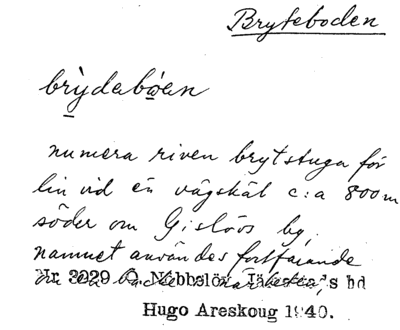 Bryteboden
brỳdebǫen
numera riven brytstuga för
lin vid en vägskäl c:a 800 m
söder om Gislövs by,
namnet användes fortfarande
Nr 3029 Ö. Nöbbelöv, s hd
Hugo Areskoug 1940.